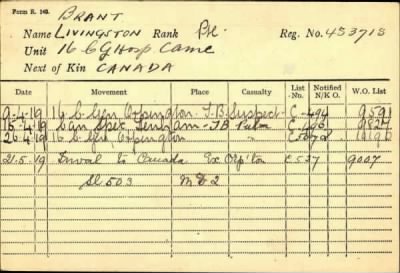 Form R. 149.
BRANT
Name LIVINGSTON Rank Pte. Reg. No. 453718
Unit 16 C G Hosp Came
Next of Kin CANADA
Date Movement Place Casualty List-No. Notified N/K O. W.O. List
9-4-19 16 C. Gen Orpington T.B. Suspect C-494 9591
15-4-19 Can Spec Lenham TB Pulm
20-4-19 16 C. Gen Orpington "
21.5.19 Inval to Canada Ex Orp'ton C 537 9007
Sl 503 M D 2